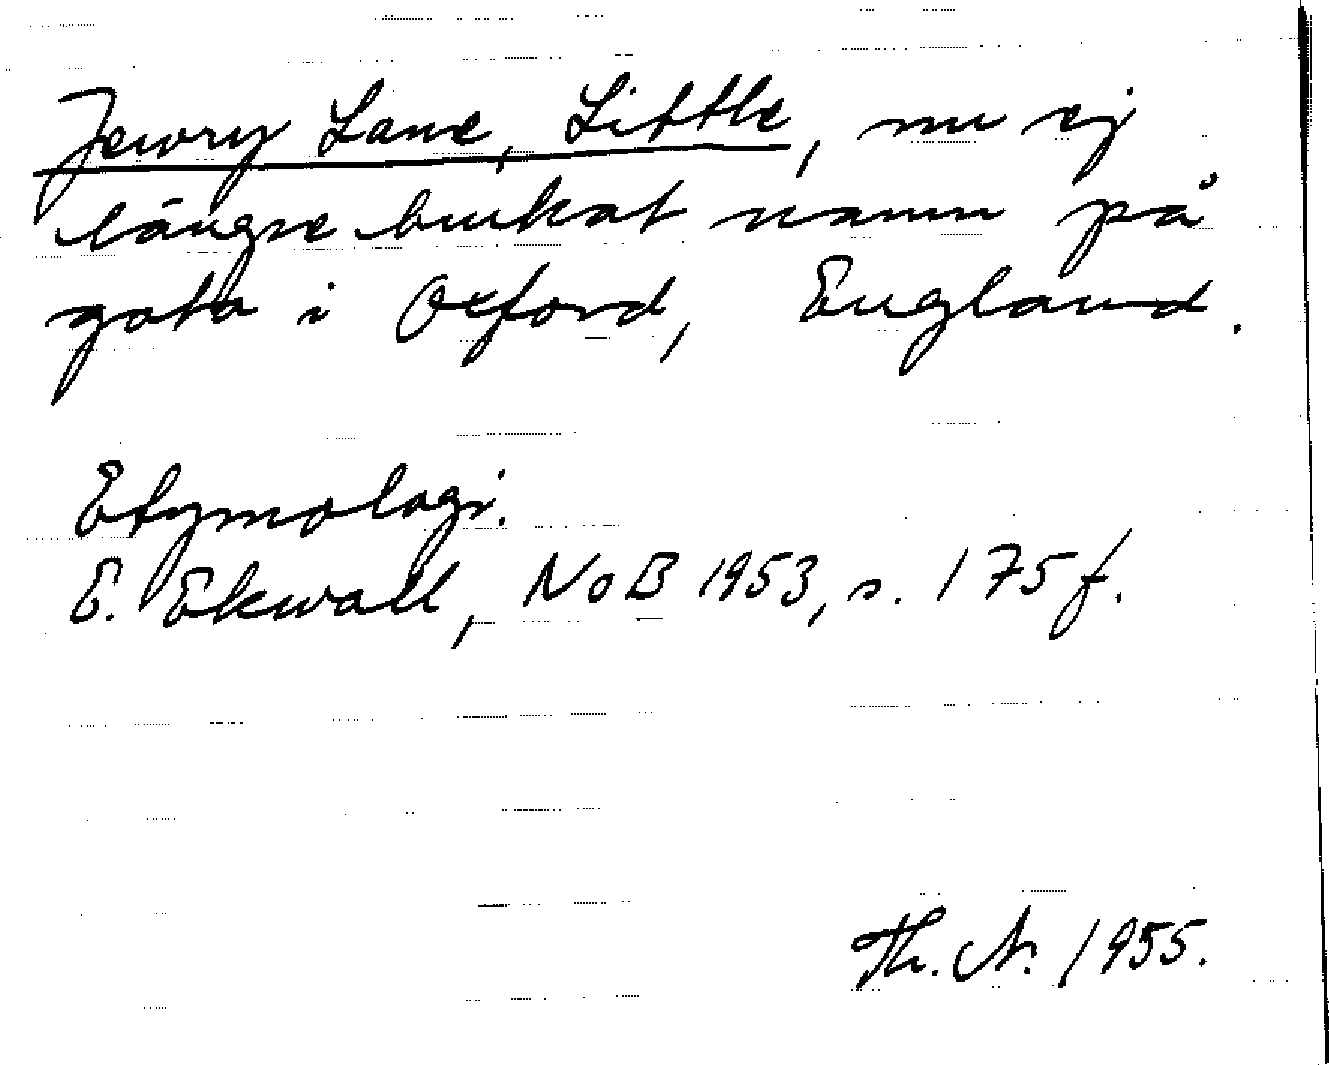 Jewry Lane, Little, nu ej
längre brukat namn på
gata i Oxford, England.
Etymologi.
E. Ekwall, NoB 1953, s. 175 f.
Th. A. 1955.